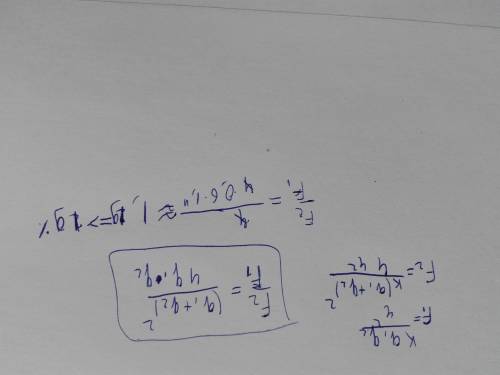 F₁ = k q₁ q₂ / r²
F₂ = k (q₁+q₂)² / 4 r²
F₂ / F₁ = (q₁+q₂)² / 4 q₁ · q₂
F₂ / F₁ = 4 / 4 · 0,6 · 1,4 ≈ 1,19 => 19 %